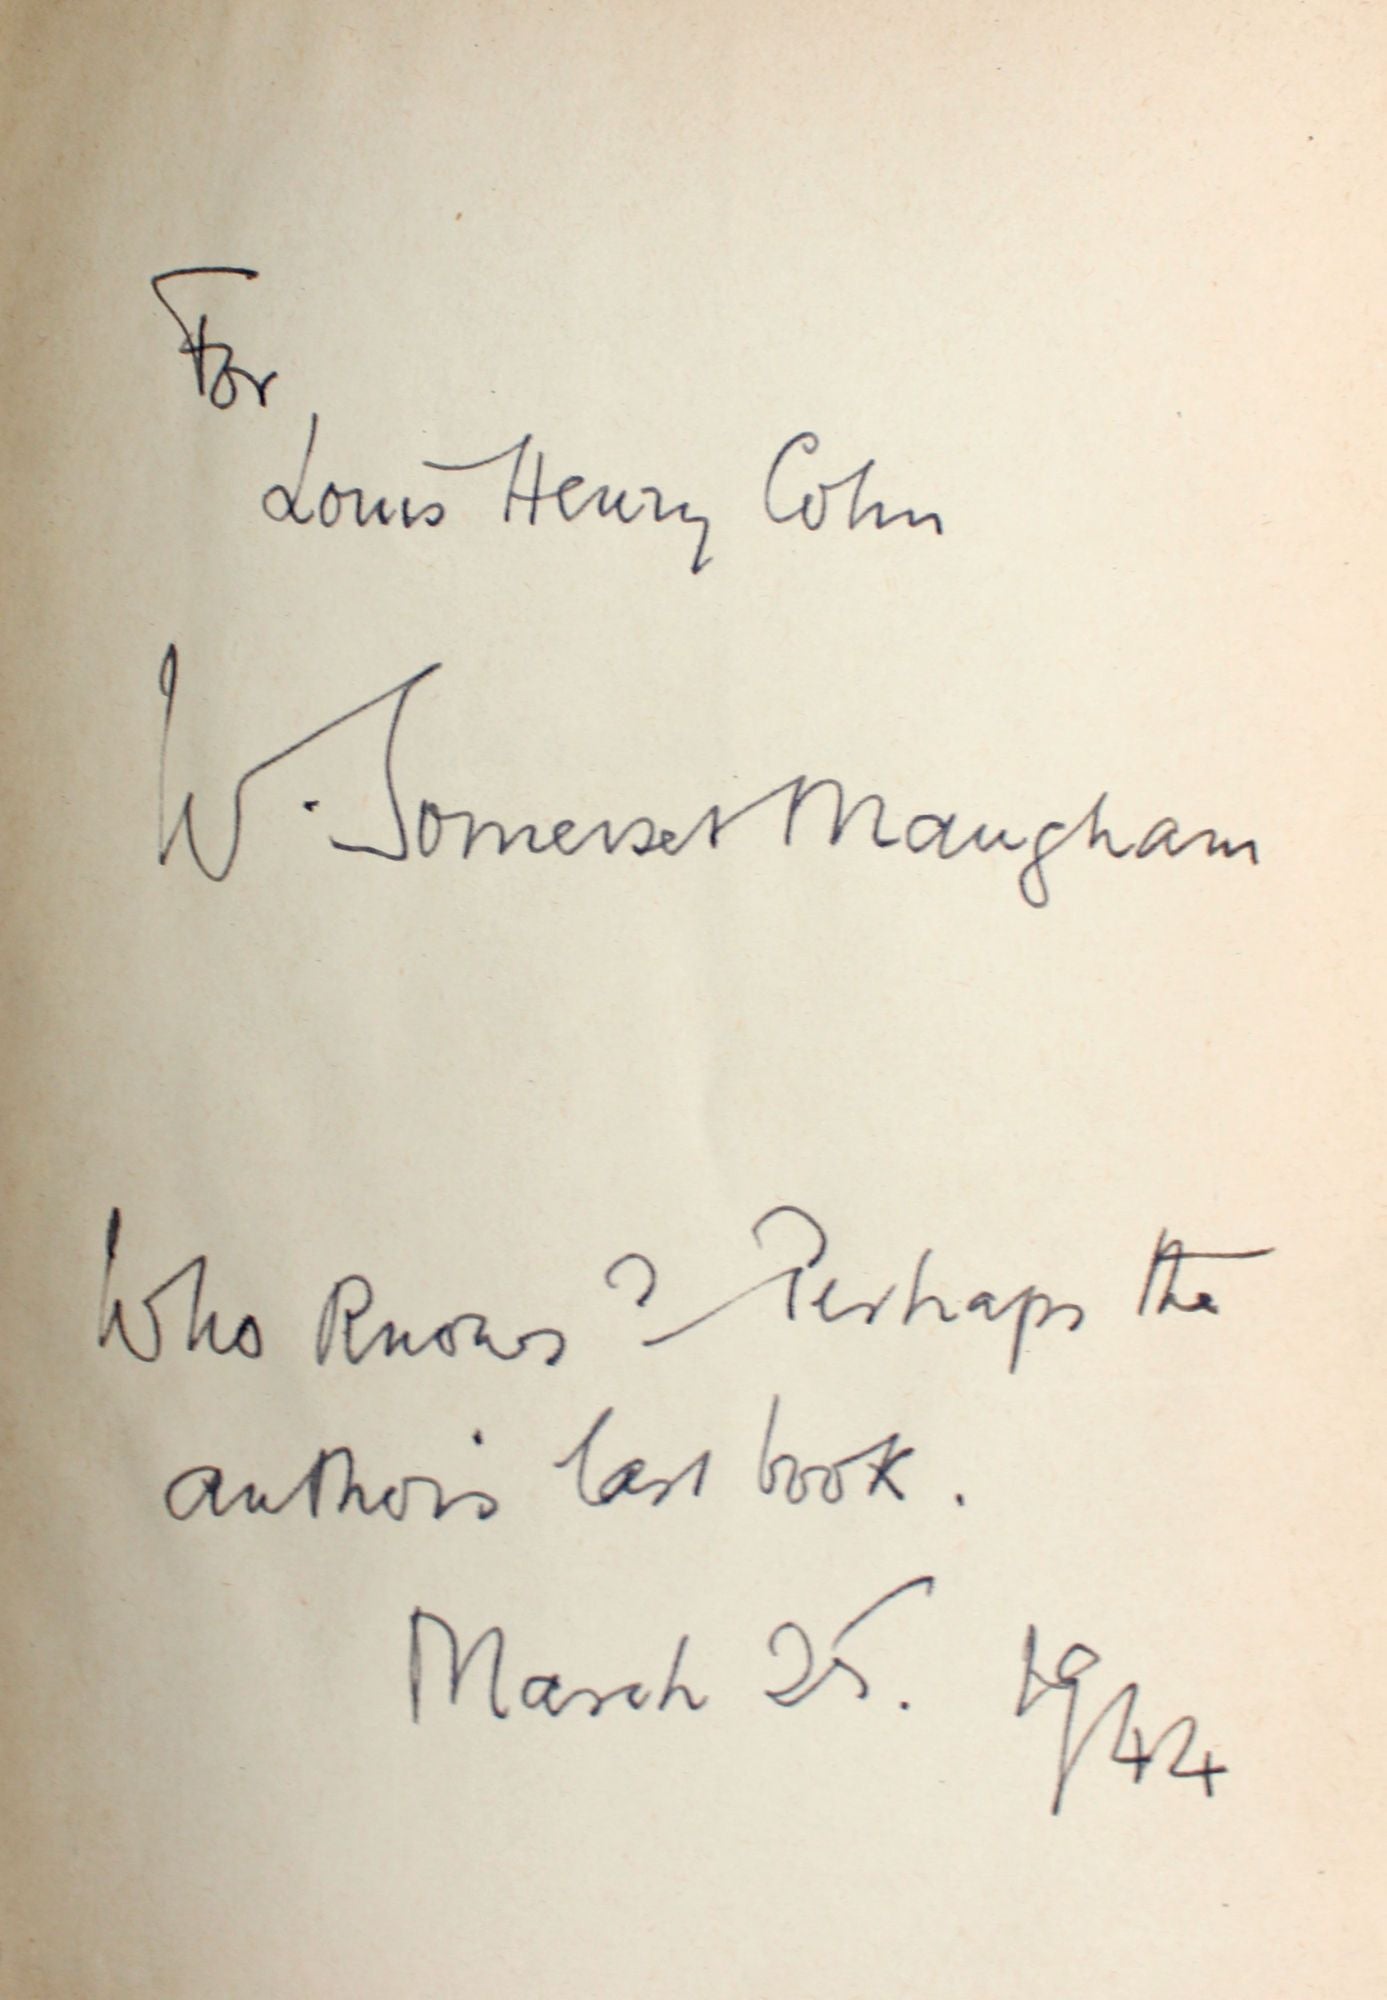 For
Louis Henry Cohn
W. Somerset Maugham
Who knows? Perhaps the
author's last book.
March 25. 1944